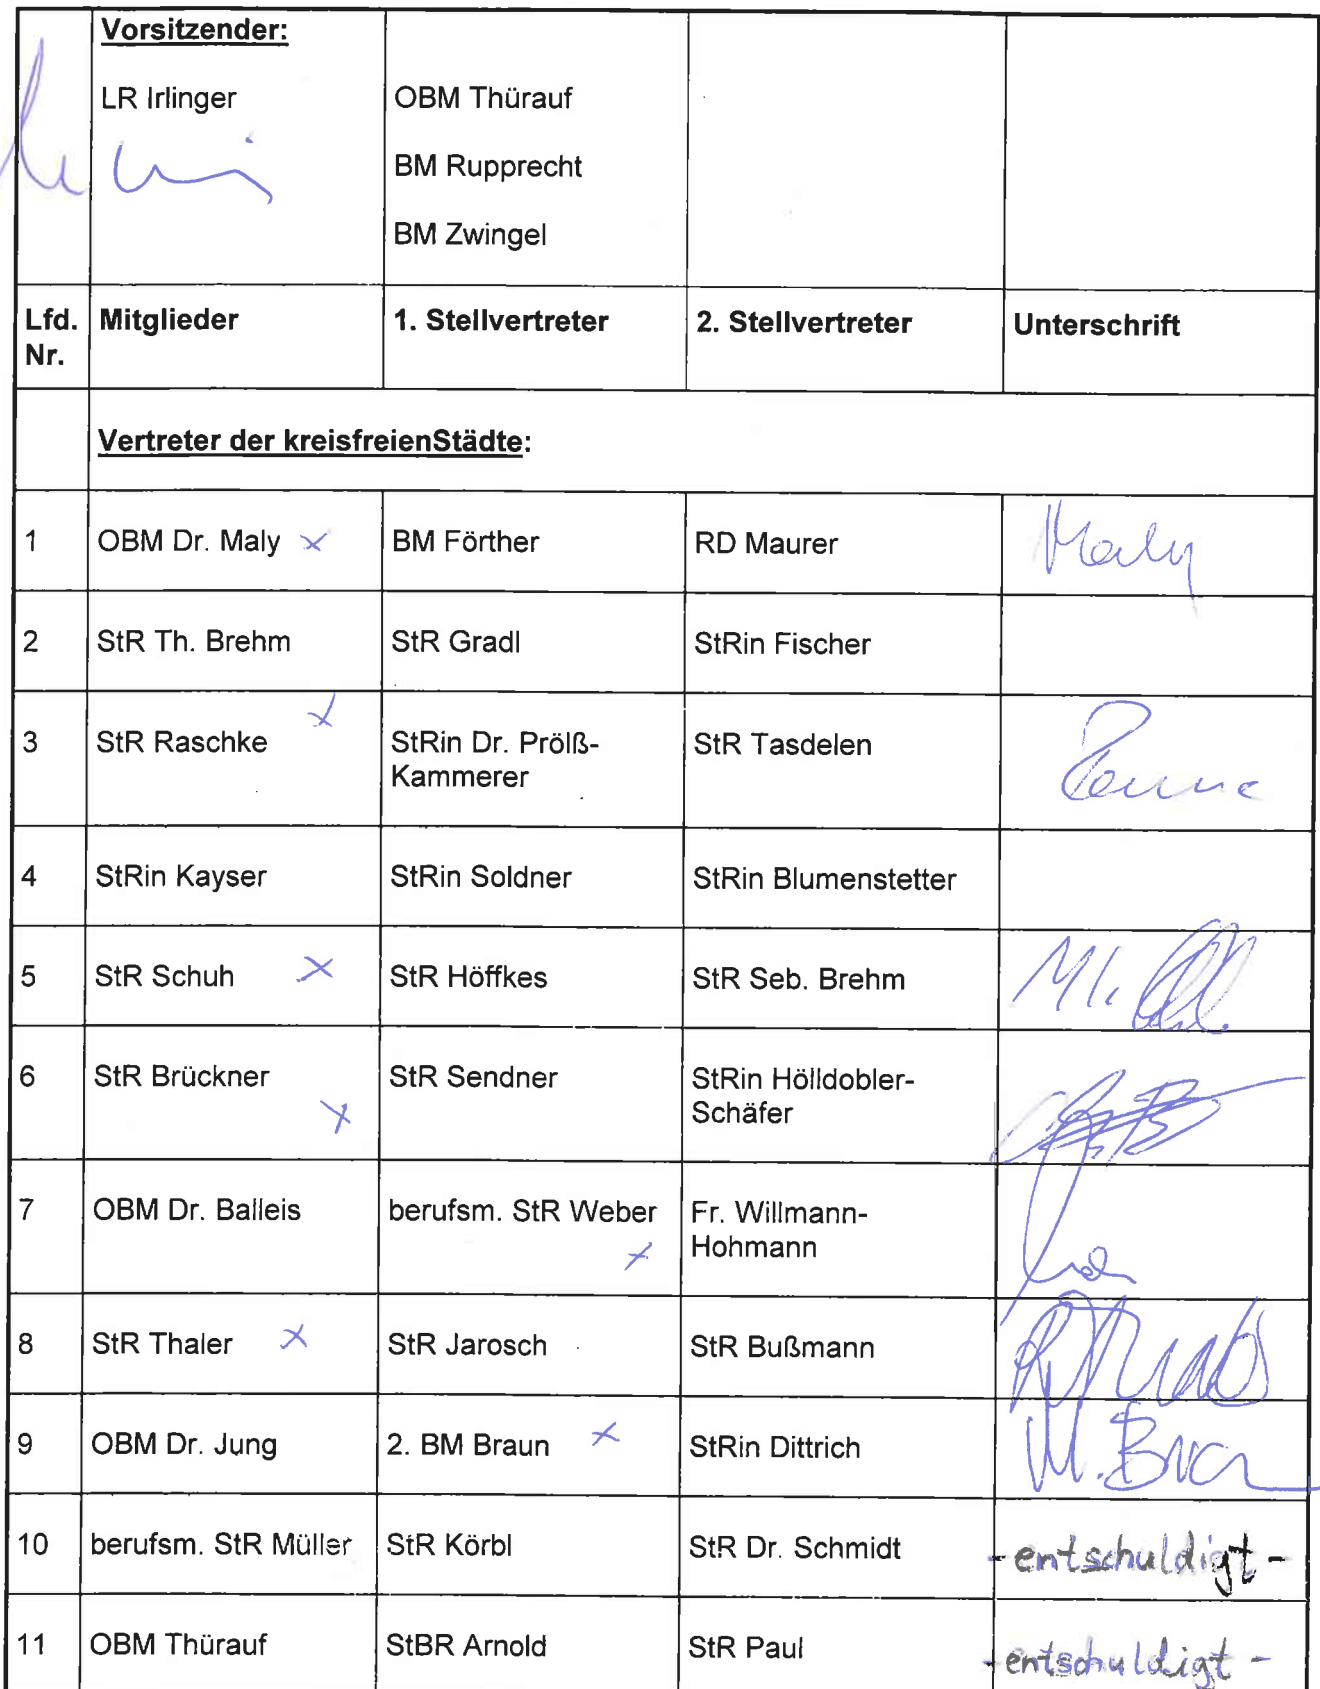 Vorsitzender:
LR Irlinger
OBM Thürauf
BM Rupprecht
BM Zwingel
Lfd. Nr. Mitglieder 1. Stellvertreter 2. Stellvertreter Unterschrift
Vertreter der kreisfreienStädte:
1 OBM Dr. Maly x BM Förther RD Maurer Maly
2 StR Th. Brehm StR Gradl StRin Fischer
3 StR Raschke x StRin Dr. Prölß- StR Tasdelen
Kammerer
4 StRin Kayser StRin Soldner StRin Blumenstetter
5 StR Schuh x StR Höffkes StR Seb. Brehm
6 StR Brückner x StR Sendner StRin Hölldobler-
Schäfer
7 OBM Dr. Balleis berufsm. StR Weber x Fr. Willmann-
Hohmann
8 StR Thaler x StR Jarosch StR Bußmann
9 OBM Dr. Jung 2. BM Braun x StRin Dittrich
10 berufsm. StR Müller StR Körbl StR Dr. Schmidt - entschuldigt -
11 OBM Thürauf StBR Arnold StR Paul - entschuldigt -